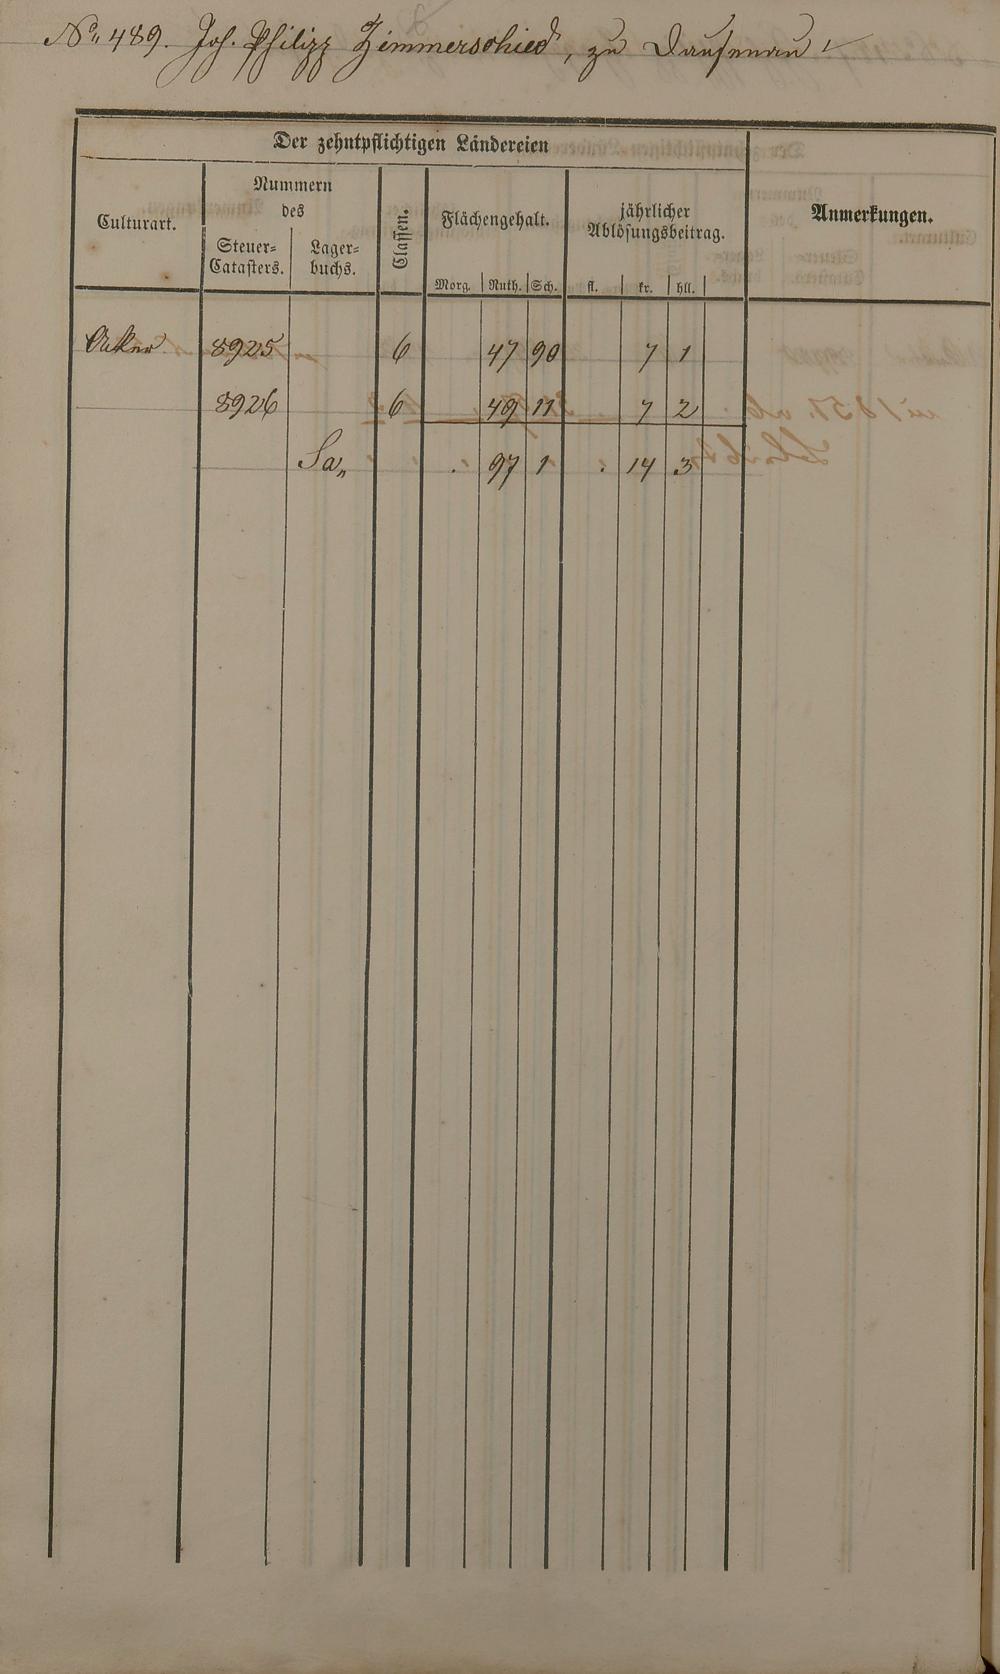 No 489. Joh. Philipp Zimmerschied, zu Dausenau
Der zehntpflichtigen Ländereien
Culturart.
Nummern
des
Steuer-
Catasters.
Lager-
buchs.
Classen.
Flächengehalt.
Morg. Ruth. Sch.
jährlicher
Ablösungsbeitrag.
fl. kr. hll.
Anmerkungen.
Acker 8925 6 47 90 7 1
8926 6 49 11 7 2
Sa. . 97 1 . 14 3